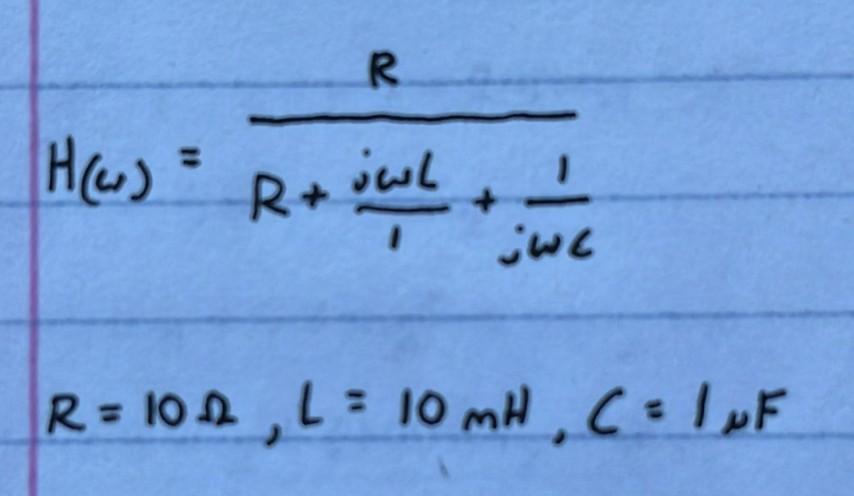 H(ω) = R / (R + jωL/1 + 1/jωC)
R = 10 Ω , L = 10 mH , C = 1 μF